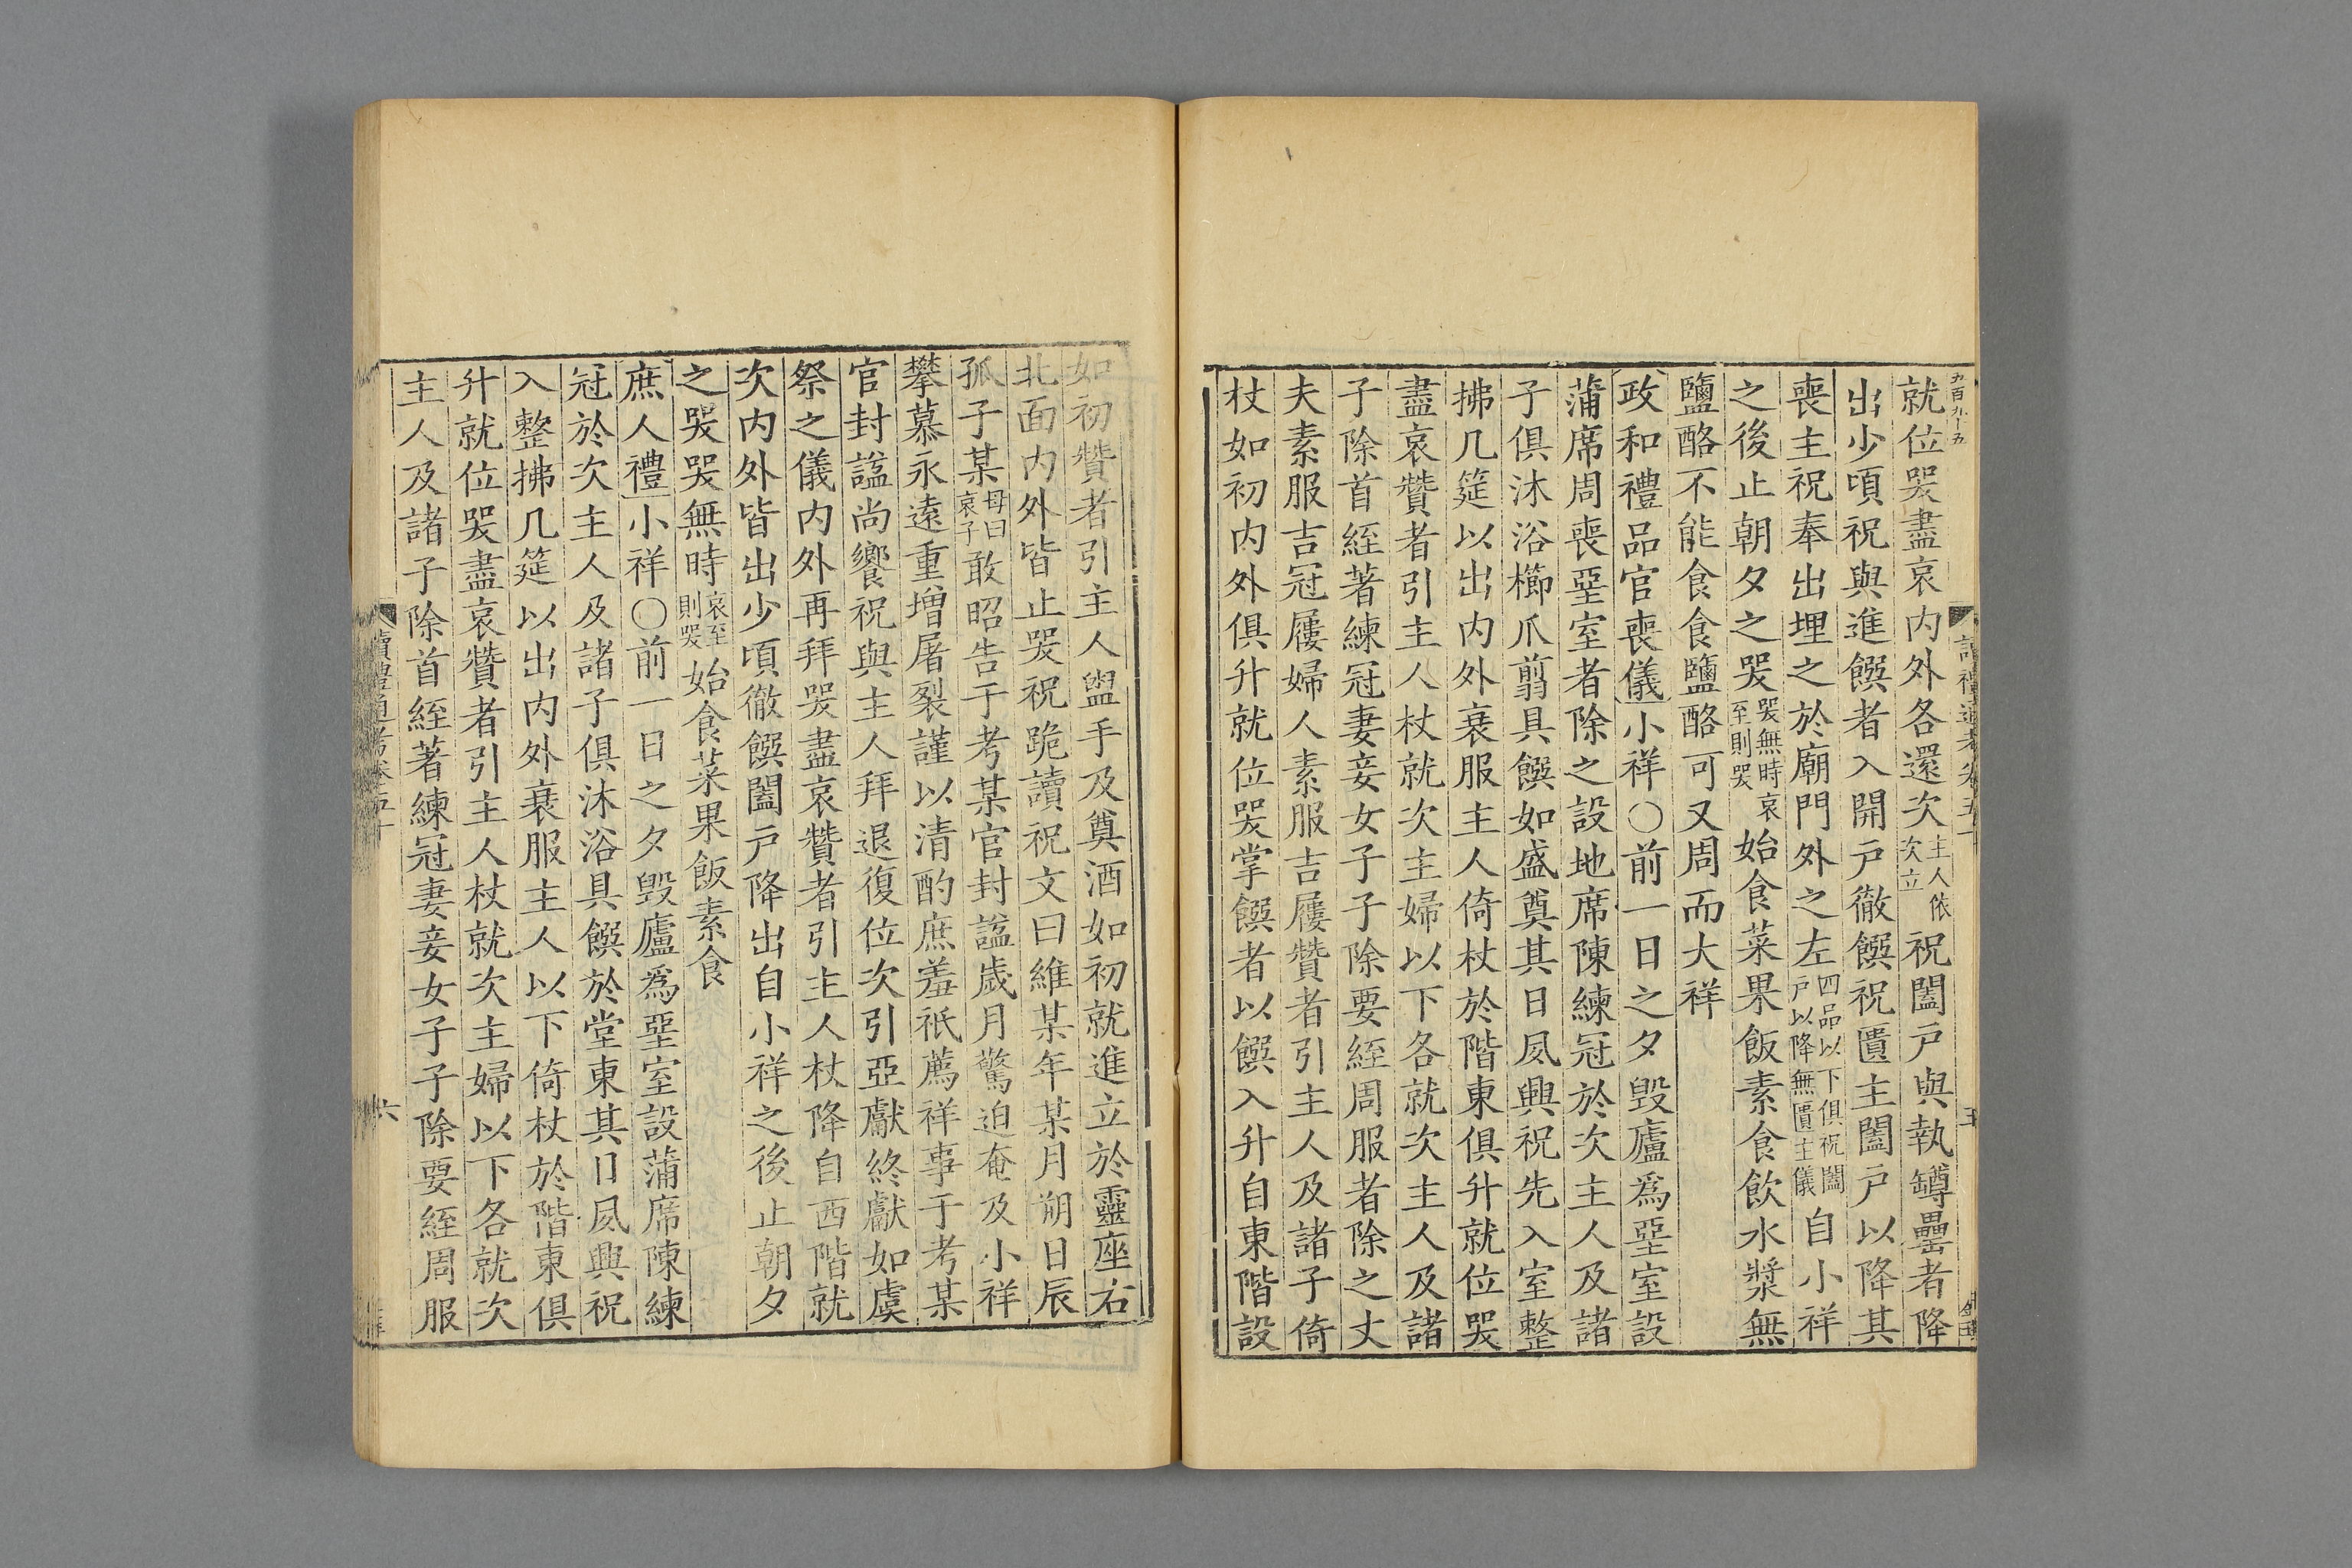 就位哭盡哀内外各還次主人依次立祝闔戸與執罇罍者降
出少頃祝與進饌者入開戸徹饌祝匱主闔戸以降其
喪主祝奉出埋之於廟門外之左四品以下俱祝闔戸以降無匱主儀自小祥
之後止朝夕之哭哭無時哀至則哭始食菜果飯素食飲水漿無
鹽酪不能食食鹽酪可又周而大祥
政和禮品官喪儀小祥○前一日之夕毁廬爲堊室設
蒲席周喪堊室者除之設地席陳練冠於次主人及諸
子俱沐浴櫛爪翦具饌如盛奠其日夙興祝先入室整
拂几筵以出内外衰服主人倚杖於階東俱升就位哭
盡哀贊者引主人杖就次主婦以下各就次主人及諸
子除首絰著練冠妻妾女子子除要絰周服者除之丈
夫素服吉冠屨婦人素服吉屨贊者引主人及諸子倚
杖如初内外俱升就位哭掌饌者以饌入升自東階設
如初贊者引主人盥手及奠酒如初就進立於靈座右
北面内外皆止哭祝跪讀祝文曰維某年某月朔日辰
孤子某母曰哀子敢昭告于考某官封謚歲月驚迫奄及小祥
攀慕永遠重增屠裂謹以清酌庶羞祇薦祥事于考某
官封謚尚饗祝與主人拜退復位次引亞獻終獻如虞
祭之儀内外再拜哭盡哀贊者引主人杖降自西階就
次内外皆出少頃徹饌闔戸降出自小祥之後止朝夕
之哭哭無時哀至則哭始食菜果飯素食
庶人禮小祥○前一日之夕毁廬爲堊室設蒲席陳練
冠於次主人及諸子俱沐浴具饌於堂東其日夙興祝
入整拂几筵以出内外衰服主人以下倚杖於階東俱
升就位哭盡哀贊者引主人杖就次主婦以下各就次
主人及諸子除首絰著練冠妻妾女子子除要絰周服
讀禮通考卷五十
六